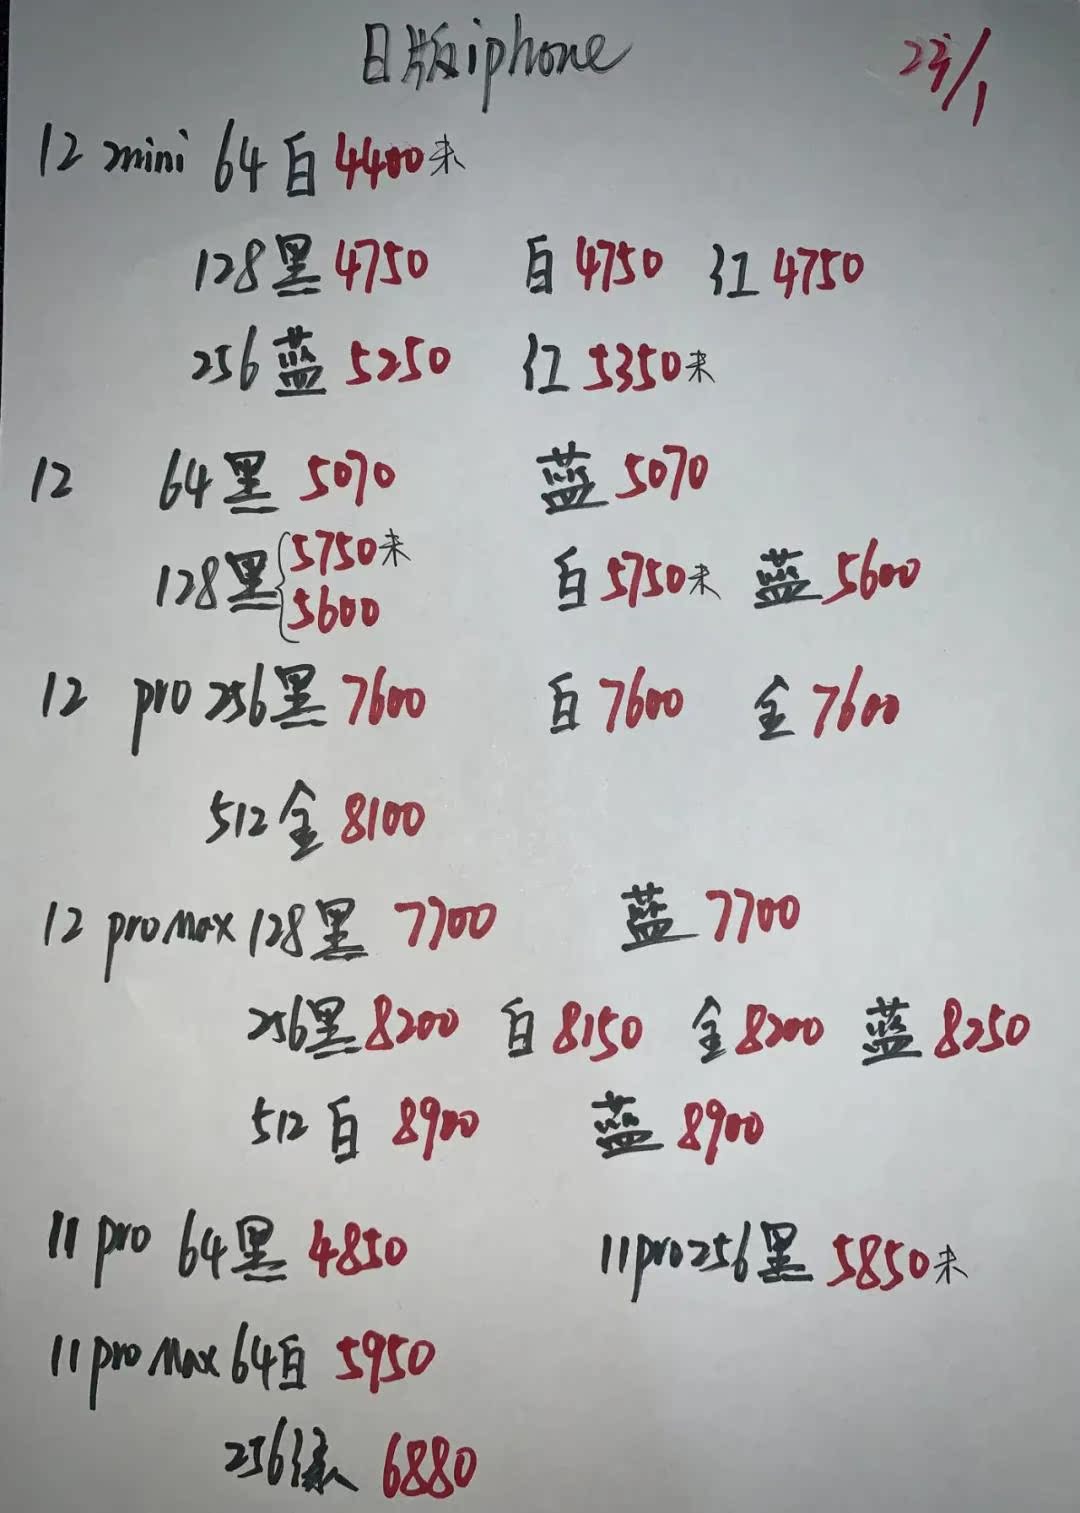 日版iphone 23/1
12 mini 64白4400未
128黑4750 白4750 红4750
256蓝5250 红5350未
12 64黑 5070 蓝5070
128黑{5750未 白5750未 蓝5600
5600
12 pro 256黑 7600 白7600 金7600
512金 8100
12 pro max 128黑 7700 蓝 7700
256黑8200 白8150 金8200 蓝8250
512白 8900 蓝8900
11 pro 64黑 4850 11pro256黑 5850未
11 pro max 64白 5950
256绿 6880